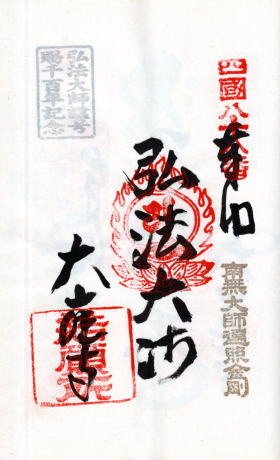 四國八十八番
奉納
南無大師遍照金剛
弘法大師
大窪寺
弘法大師諡号
賜千百年記念